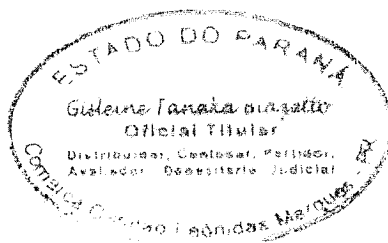 ESTADO DO PARANÁ
Gisleine Tanaka
Oficial Titular
Distribuidor, Contador, Partidor,
Avaliador Depositario Judicial
Comarca Capitão Leônidas Marques - PR